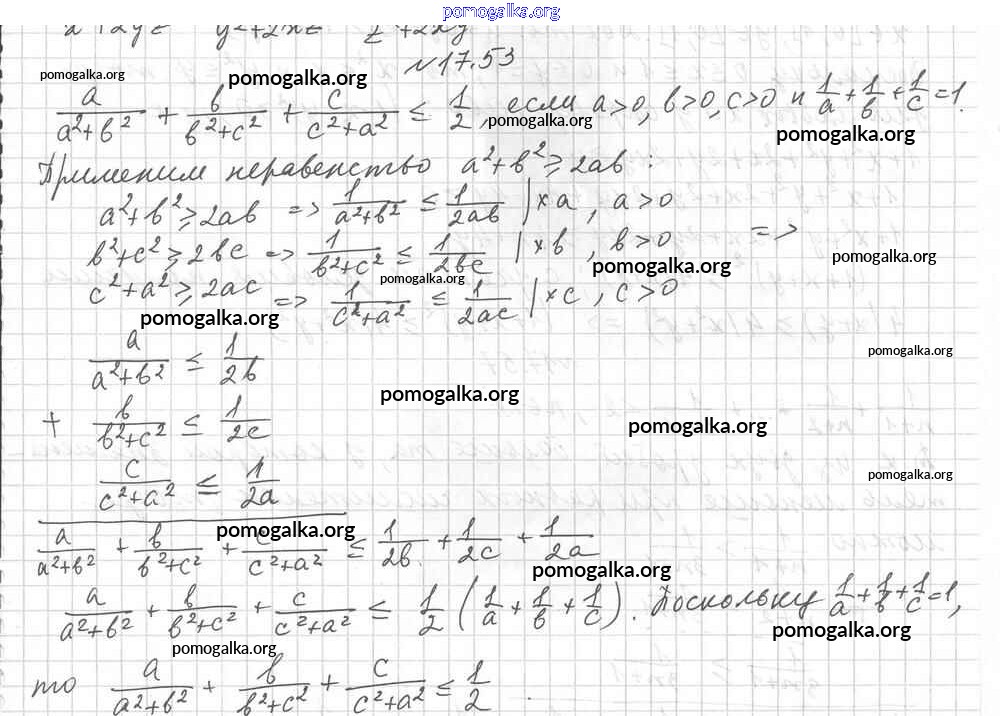 pomogalka.org
№17.53
pomogalka.org pomogalka.org
a/(a²+b²) + b/(b²+c²) + c/(c²+a²) ≤ 1/2, если a>0, b>0, c>0 и 1/a+1/b+1/c=1.
pomogalka.org
pomogalka.org
Применим неравенство a²+b²≥2ab:
a²+b²≥2ab => 1/(a²+b²) ≤ 1/2ab |×a, a>0
b²+c²≥2bc => 1/(b²+c²) ≤ 1/2bc |×b, b>0 =>
pomogalka.org pomogalka.org pomogalka.org
c²+a²≥2ac => 1/(c²+a²) ≤ 1/2ac |×c, c>0
pomogalka.org
a/(a²+b²) ≤ 1/2b
pomogalka.org
pomogalka.org
+ b/(b²+c²) ≤ 1/2c
pomogalka.org
c/(c²+a²) ≤ 1/2a
pomogalka.org
pomogalka.org
a/(a²+b²) + b/(b²+c²) + c/(c²+a²) ≤ 1/2b + 1/2c + 1/2a
pomogalka.org
a/(a²+b²) + b/(b²+c²) + c/(c²+a²) ≤ 1/2 (1/a+1/b+1/c). Поскольку 1/a+1/b+1/c=1,
pomogalka.org
pomogalka.org
то a/(a²+b²) + b/(b²+c²) + c/(c²+a²) ≤ 1/2.